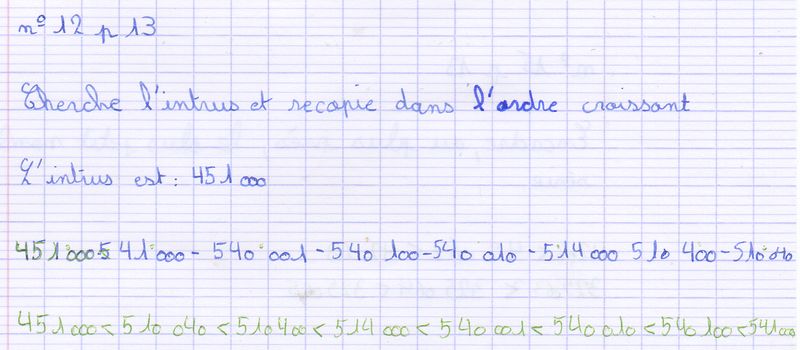 n° 12 p 13
Cherche l'intrus et recopie dans l'ordre croissant
L'intrus est : 451 000
451 000 541 000 - 540 001 - 540 100 - 540 010 - 514 000 510 400 - 510 040
451 000 < 510 040 < 510 400 < 514 000 < 540 001 < 540 010 < 540 100 < 541 000